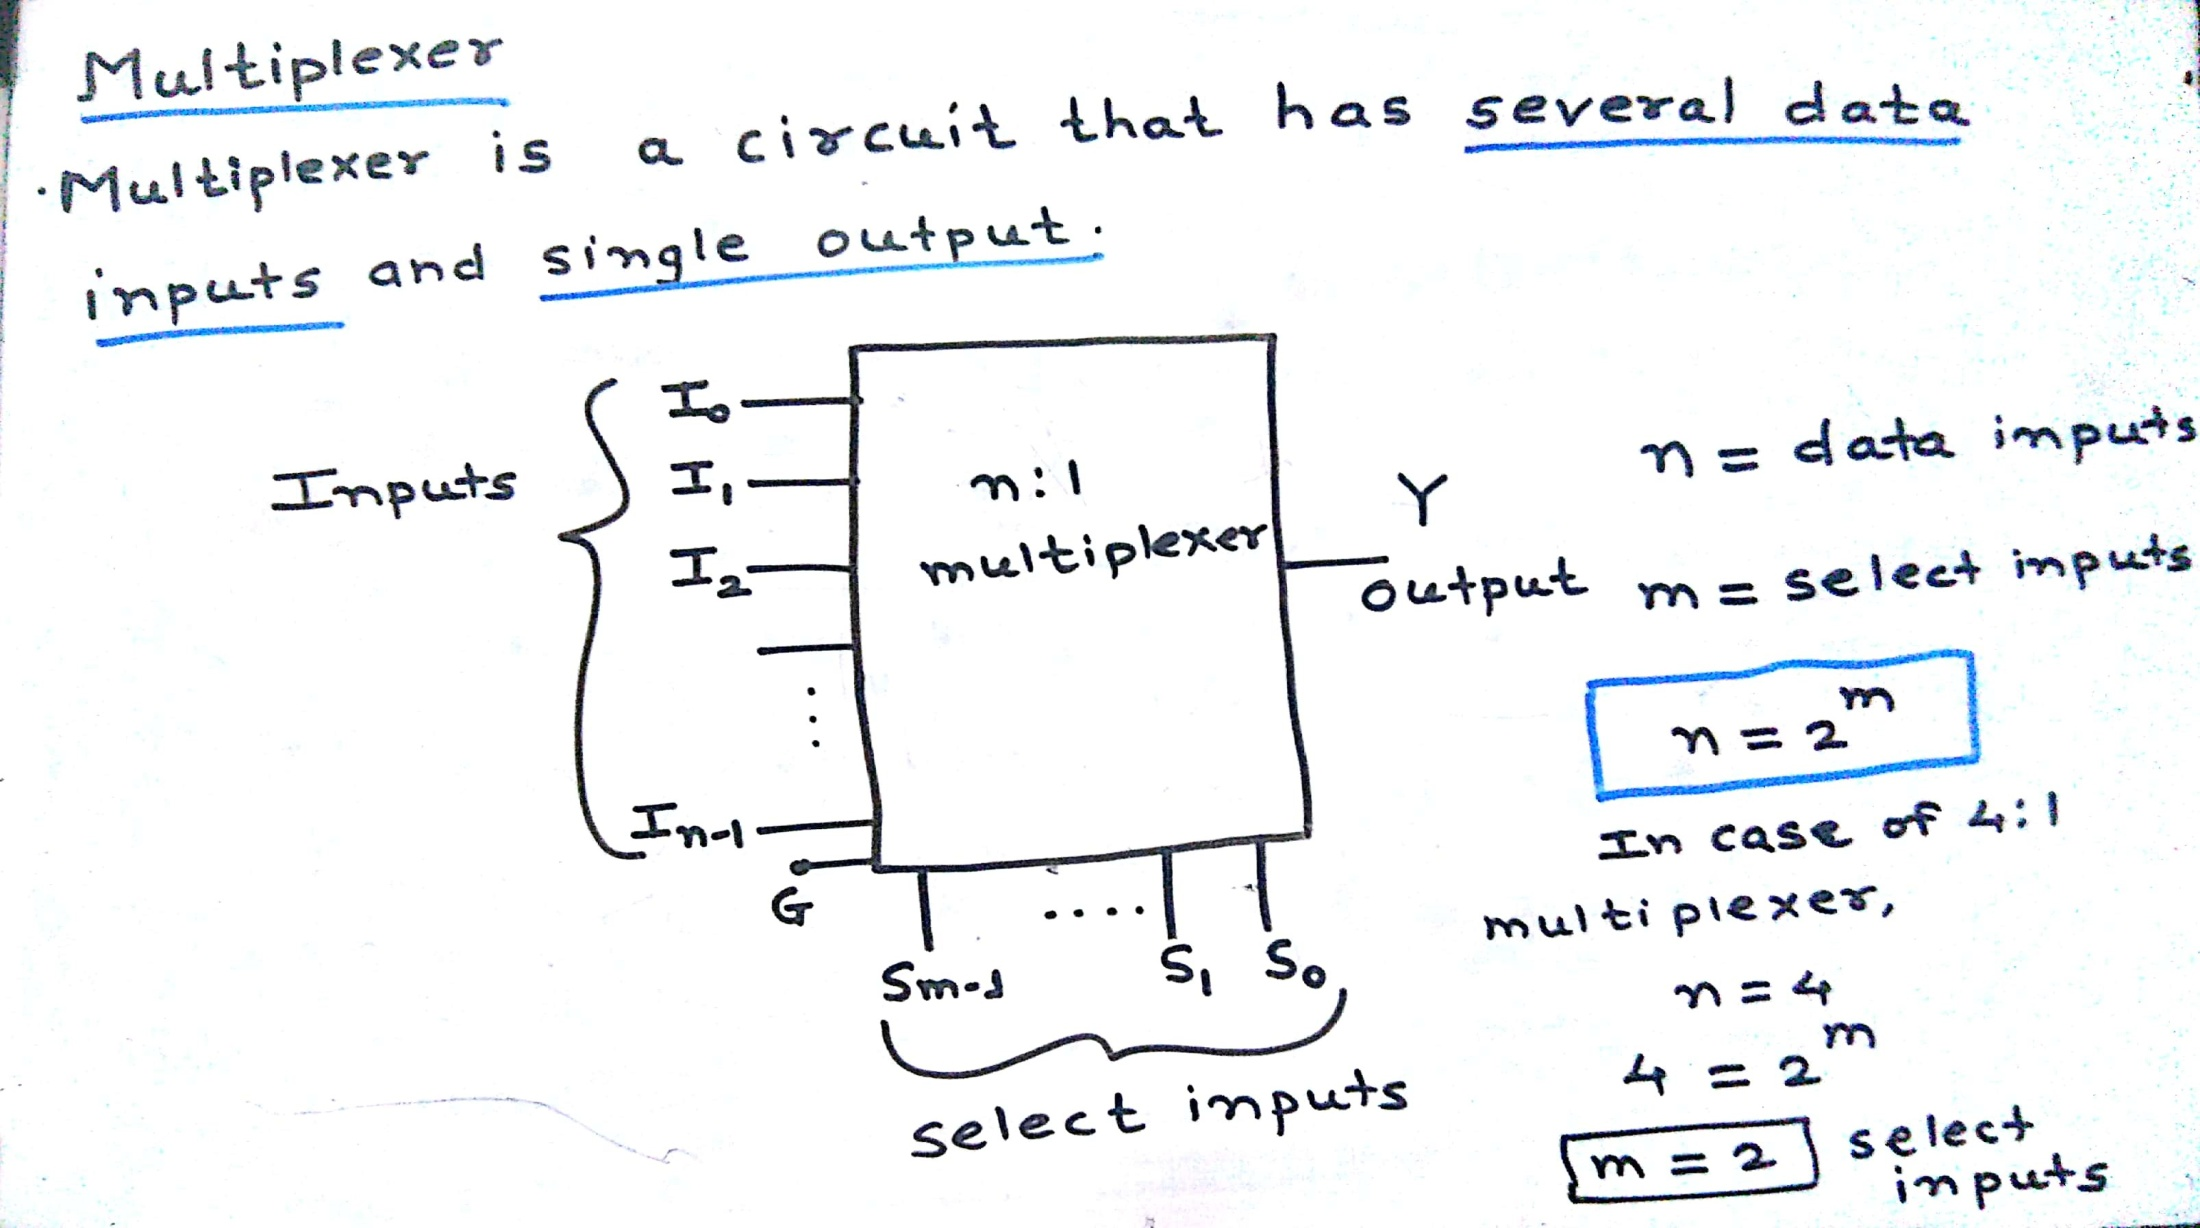 Multiplexer
·Multiplexer is a circuit that has several data
inputs and single output.
Inputs
I₀
I₁
I₂
⋮
Iₙ₋₁
G
n:1
multiplexer
Y
output
Sₘ₋₁ .... S₁ S₀
select inputs
n = data inputs
m = select inputs
n = 2ᵐ
In case of 4:1
multiplexer,
n = 4
4 = 2ᵐ
m = 2 select
inputs